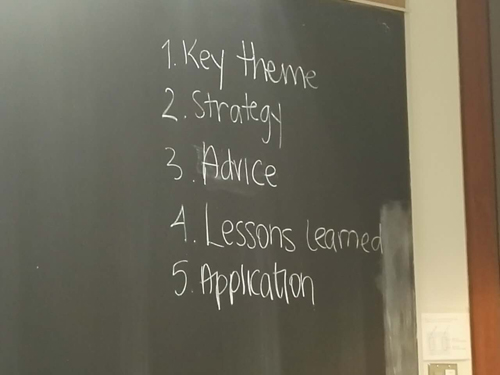 1. Key theme
2. Strategy
3. Advice
4. Lessons learned
5. Application